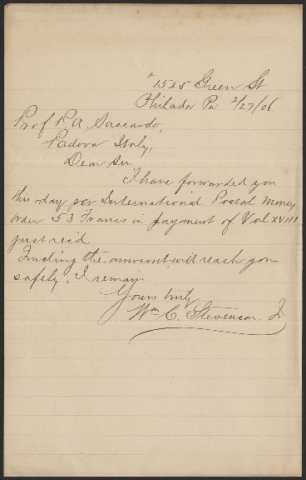 1525 Green St.
Philada Pa 2/27/06
Prof P. A. Saccardo,
Padova Italy,
Dear Sir
I have forwarded you
this day per International Postal Money
Order 53 Francs in payment of Vol XVIII
just rec'd
Trusting the amount will reach you
safely, I remain
Yours truly
Wm C. Stevenson Jr